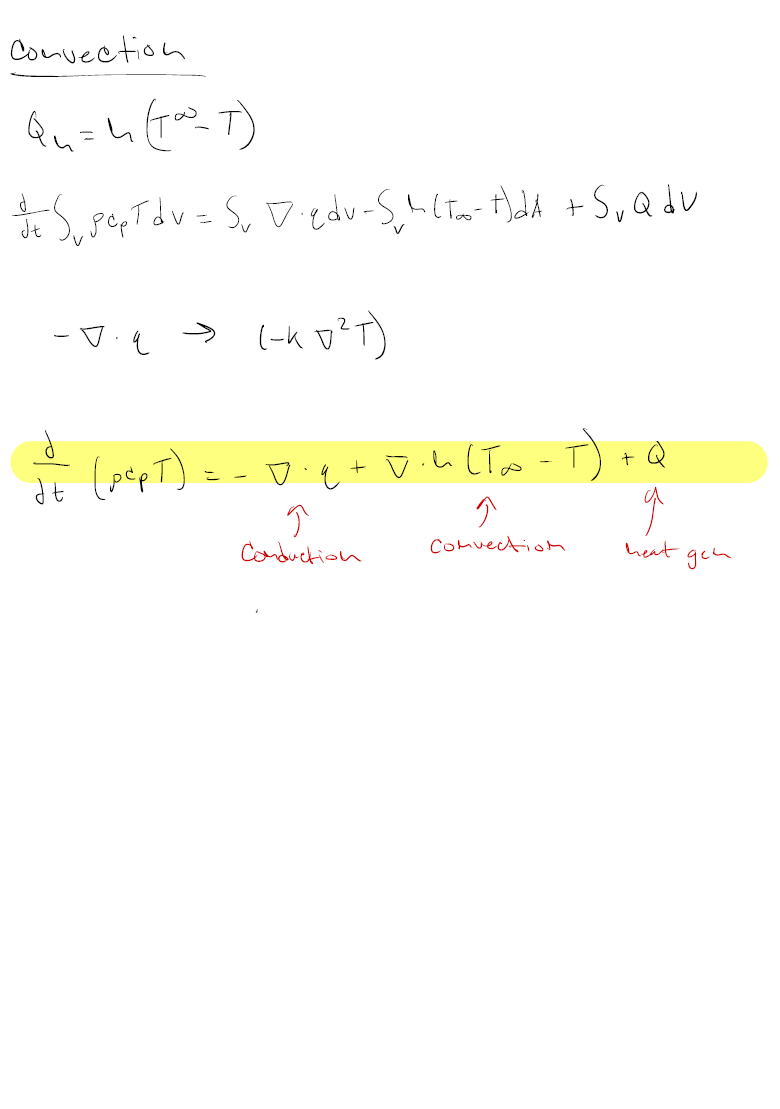 Convection
Q_h = h (T^∞ - T)
d/dt ∫_v ρc_pTdv = ∫_v ∇·qdv - ∫_v h(T_∞ - t)dA + ∫_v QdV
-∇·q → (-k∇²T)
d/dt (ρc_pT) = -∇·q + ∇·h(T_∞ - T) + Q
Conduction convection heat gen